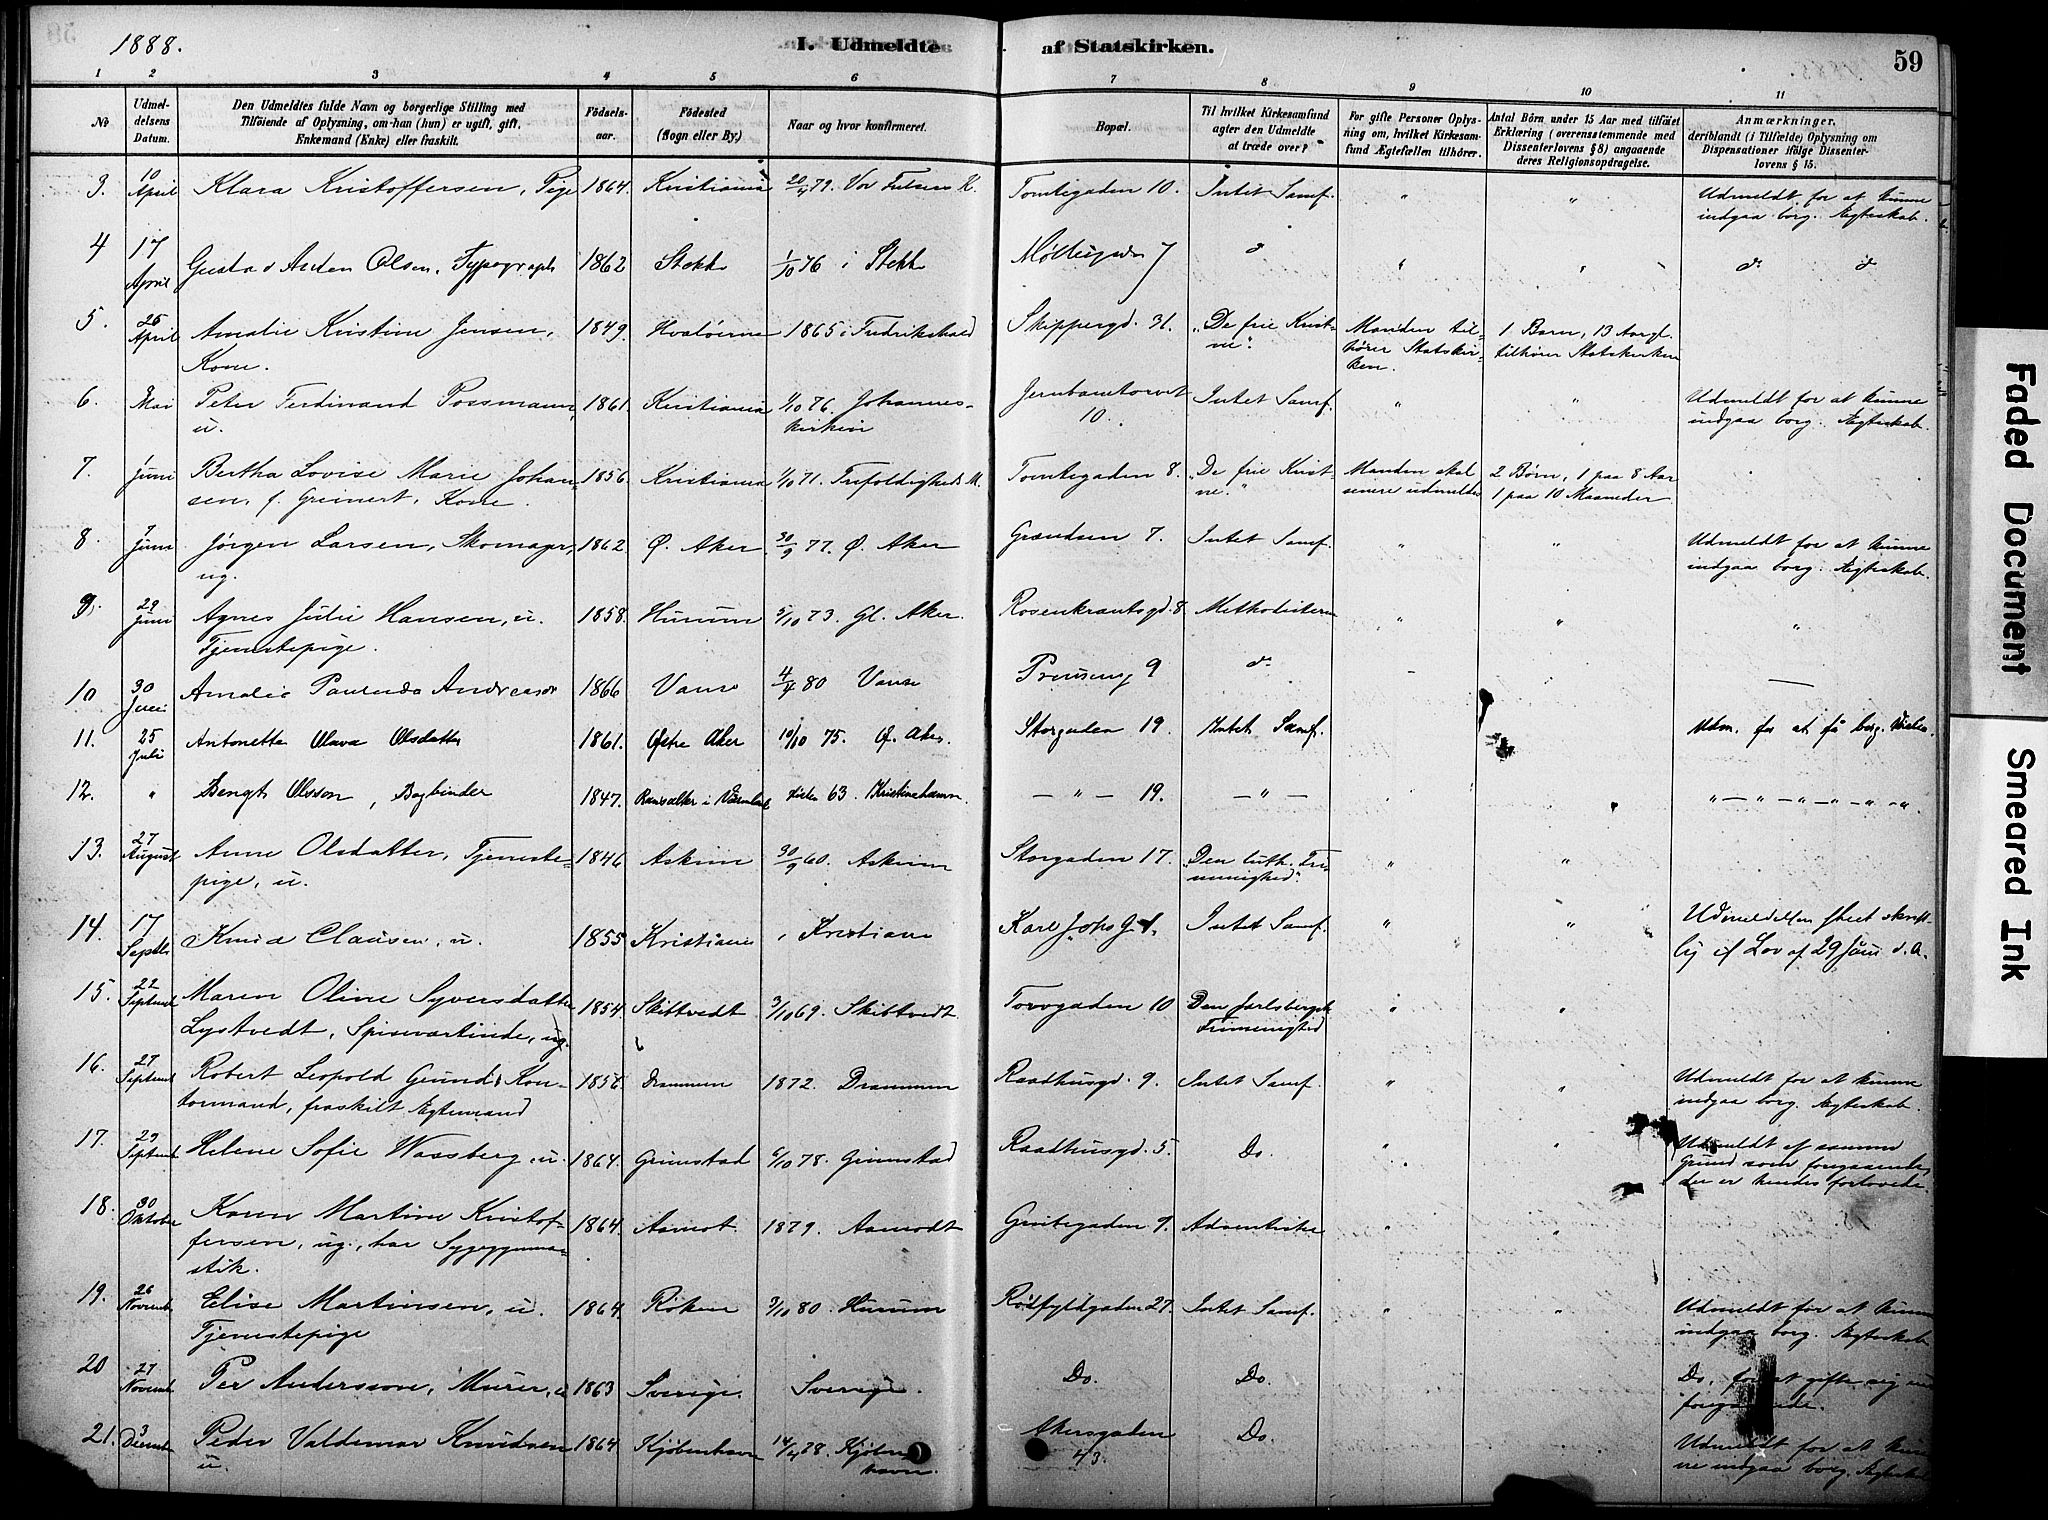 1888.
I. Udmeldte af Statskirken.
59
1 2 3 4 5 6 7 8 9 10 11
No
Udmel-
delsens
Datum.
Den Udmeldtes fulde Navn og borgerlige Stilling med
Tilföiende af Oplysning, om han (hun) er ugift, gift,
Enkemand (Enke) eller fraskilt.
Födsels-
aar.
Födested
(Sogn eller By.)
Naar og hvor konfirmeret.
Bopæl.
Til hvilket Kirkesamfund
agter den Udmeldte
at træde over?
For gifte Personer Oplys-
ning om, hvilket Kirkesam-
fund Ægtefællen tilhörer.
Antal Börn under 15 Aar med tilföiet
Erklæring (overensstemmende med
Dissenterlovens § 8) angaaende
deres Religionsopdragelse.
Anmærkninger,
deriblandt (i Tilfælde) Oplysning om
Dispensationer ifölge Dissenter-
lovens § 15.
3. 10 April Klara Kristoffersen, Pige 1864. Kristiania 79. Vor Frelsers K. Tomtegaden 10. Intet Samf. " " Udmeldt for at kunne
indgaa borg. Ægteskab.
4 17 April Gustav Anton Olsen, Typograph 1862 1/10 76 i Møllergaden 7 d " " do d
5. 26 April Amalie Kristine Jensen, 1849. Hvaløerne 1865 i Fredrikshald Skippergd. 31. "De frie Krist- Manden til- 1 Barn, 13 Aar gl.
Kone. ne". hører Statskir- tilhører Statskirken
ken.
6. Mai Peter Ferdinand Possmann, 1861. Kristiania 1/10 76. Johannes- Jernbanetorvet Intet Samf. " " Udmeldt for at kunne
u. kirken 10. indgaa borg. Ægteskab.
7. Juni Bertha Lovise Marie Johan- 1856. Kristiania 1/10 71. Trefoldigheds K. Tomtegaden 8. "De frie Krist- Manden skal 2 Børn, 1 paa 8 Aar
sen, f. Greinert, Kone. ne." senere udmeldes 1 paa 10 Maaneder
8. 7 Juni Jørgen Larsen, Skomager, 1862 Ø. Aker 30/9 77. Ø. Aker Grændsen 7. Intet Samf. " " Udmeldt for at kunne
ug. indgaa borg. Ægteskab.
9. 29 Juni Agnes Julie Hansen, u. 1858. Hurum 5/10 73. Gl. Aker. Rosenkrantsgd. 8. Methodisterne " " "
Tjenestepige.
10 30 Juni Amalie Andreasdr 1866 Vanse 4/4 80 Vanse 9 do
11. 25 Juli Antonette Olava Olsdatter 1861. Østre Aker 10/10 75. Ø. Aker. Storgaden 19. Intet Samf. Udm. for at få borg. Vielse.
12. " Bengt Olsson, Bogbinder 1847. Ransäter i Värmland 63. Kristinehamn. — " — 19. — " — " — " — " — " — " — "
13. 27 August Anne Olsdatter, Tjeneste- 1846 Askim 30/9 60. Askim Storgaden 17. "Den luth. Fri- " "
pige, u. menighed".
14. 17 Septbr Knud Clausen, u. 1855 Kristiania " Kristiania Karl Johs G. 1. Intet Samf. " " Udmeldelsen skeet skrift-
lig if Lov af 29 Juni d. A.
15. 22 Septemb Maren Oline Syversdatter 1854 Skiftvedt 3/10 69. Skiftvedt Torvgaden 10 Den Jarlsbergske " "
Lystvedt, Spiseværtinde, ug. Frimenighed
16. 27 Septemb Robert Leopold Grund, Kon- 1856. Drammen 1872. Drammen Raadhusgd. 9. Intet Samf. " " Udmeldt for at kunne
tormand, fraskilt Ægtemand indgaa borg. Ægteskab.
17. 29 Septemb Helene Sofie Wassberg, u. 1864. Grimstad 6/10 78. Grimstad Raadhusgd. 5. Do. " " Udmeldt af samme
Grund som foregaaende,
der er hendes forlovede.
18. 30 Oktober Karen Martine Kristof- 1864. Aamot. 1879. Aamodt Grittegaden 9. Adventister " "
fersen, ug., har Sygegymna-
stik.
19. 26 Novemb. Elise Martinsen, u. 1864. Røken 3/10 80. Hurum Rødfyldgaden 27. Intet Samf. " " Udmeldt for at kunne
Tjenestepige indgaa borg. Ægteskab
20 27 Novemb. Per Andersson, Murer, u 1863 Sverige. Sverige. Do. Do. Do. for at gifte sig
21. 3 Decemb Peder Valdemar Knudsen 1864. Kjøbenhavn Kjøben- Akersgaden Do. Udmeldt for at kun-
u. havn. 43. ne indgaa borg. Ægteskab
Faded Document
Smeared Ink